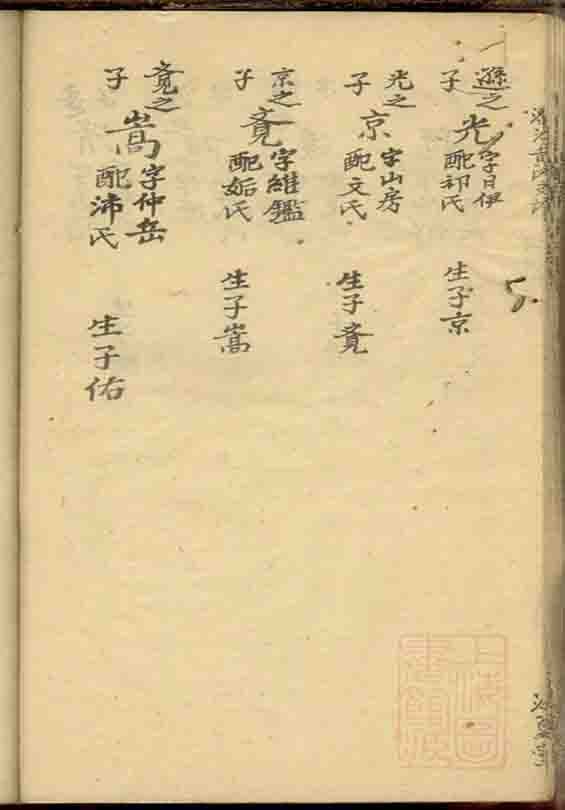 遜之子 光 字日伊 配祁氏 生子京
光之子 京 字山房 配文氏 生子竟
京之子 竟 字維鑑 配姤氏 生子嵩
竟之子 嵩 字仲岳 配沛氏 生子佑
5.
上海圖書館藏